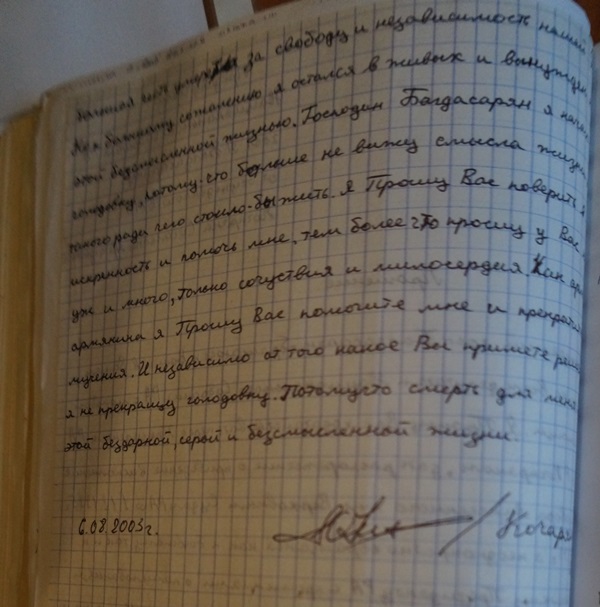 большая честь умереть за свободу и независимость нашей
Но к большому сожалению я остался в живых и вынужден
этой безсмысленной жизнью. Господин Багдасарян я начал
голодовку, потому что больше не вижу смысла жизни
такого ради чего стоило-бы жить. Я Прошу Вас поверить в
искренность и помочь мне, тем более что прошу у Вас
уж и много, только сочуствия и милосердия. Как
армянина я Прошу Вас помогите мне и прекратите
мучения. И независимо от того какое Вы примете
я не прекращу голодовку. Потомучто смерть для меня
этой бездарной, серой и безсмысленной жизни.
6.08.2003г.
/ Кочарян